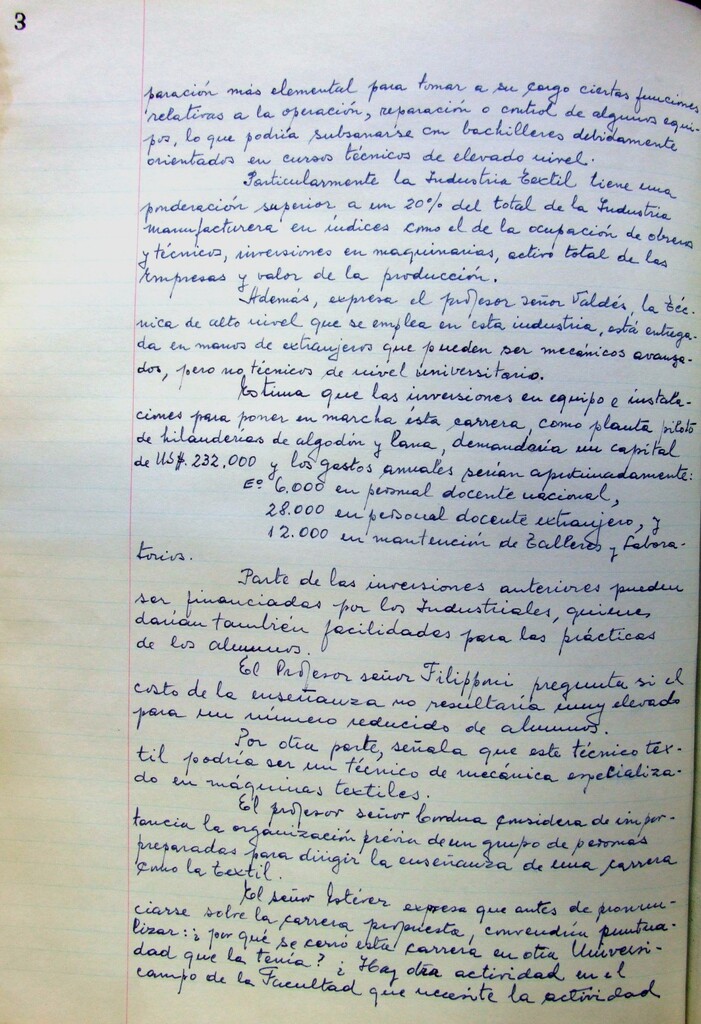 3
paración más elemental para tomar a su cargo ciertas funciones
relativas a la operación, reparación o control de algunos equi-
pos, lo que podría subsanarse con bachilleres debidamente
orientados en cursos técnicos de elevado nivel.
Particularmente la Industria Textil tiene una
ponderación superior a un 20% del total de la Industria
manufacturera en índices como el de la ocupación de obreros
y técnicos, inversiones en maquinarias, activo total de las
Empresas y valor de la producción.
Además, expresa el profesor señor Valdés, la Téc-
nica de alto nivel que se emplea en esta industria, está entrega-
da en manos de extranjeros que pueden ser mecánicos avanza-
dos, pero no técnicos de nivel universitario.
Estima que las inversiones en equipo e instala-
ciones para poner en marcha ésta carrera, como planta piloto
de hilanderías de algodón y lana, demandaría un capital
de US$. 232.000 y los gastos anuales serían aproximadamente:
Eº 6.000 en personal docente nacional,
28.000 en personal docente extranjero, y
12.000 en mantención de Talleres y Labora-
torios.
Parte de las inversiones anteriores pueden
ser financiadas por los Industriales, quienes
darían también facilidades para las prácticas
de los alumnos.
El Profesor señor Filipponi pregunta si el
costo de la enseñanza no resultaría muy elevado
para un número reducido de alumnos.
Por otra parte, señala que este técnico tex-
til podría ser un técnico de mecánica especializa-
do en máquinas textiles.
El profesor señor Cordua considera de impor-
tancia la organización previa de un grupo de personas
preparadas para dirigir la enseñanza de una carrera
como la textil.
El señor Estévez expresa que antes de pronun-
ciarse sobre la carrera propuesta, convendría puntua-
lizar: ¿por qué se cerró esta carrera en otra Universi-
dad que la tenía? ¿Hay otra actividad en el
campo de la Facultad que necesite la actividad